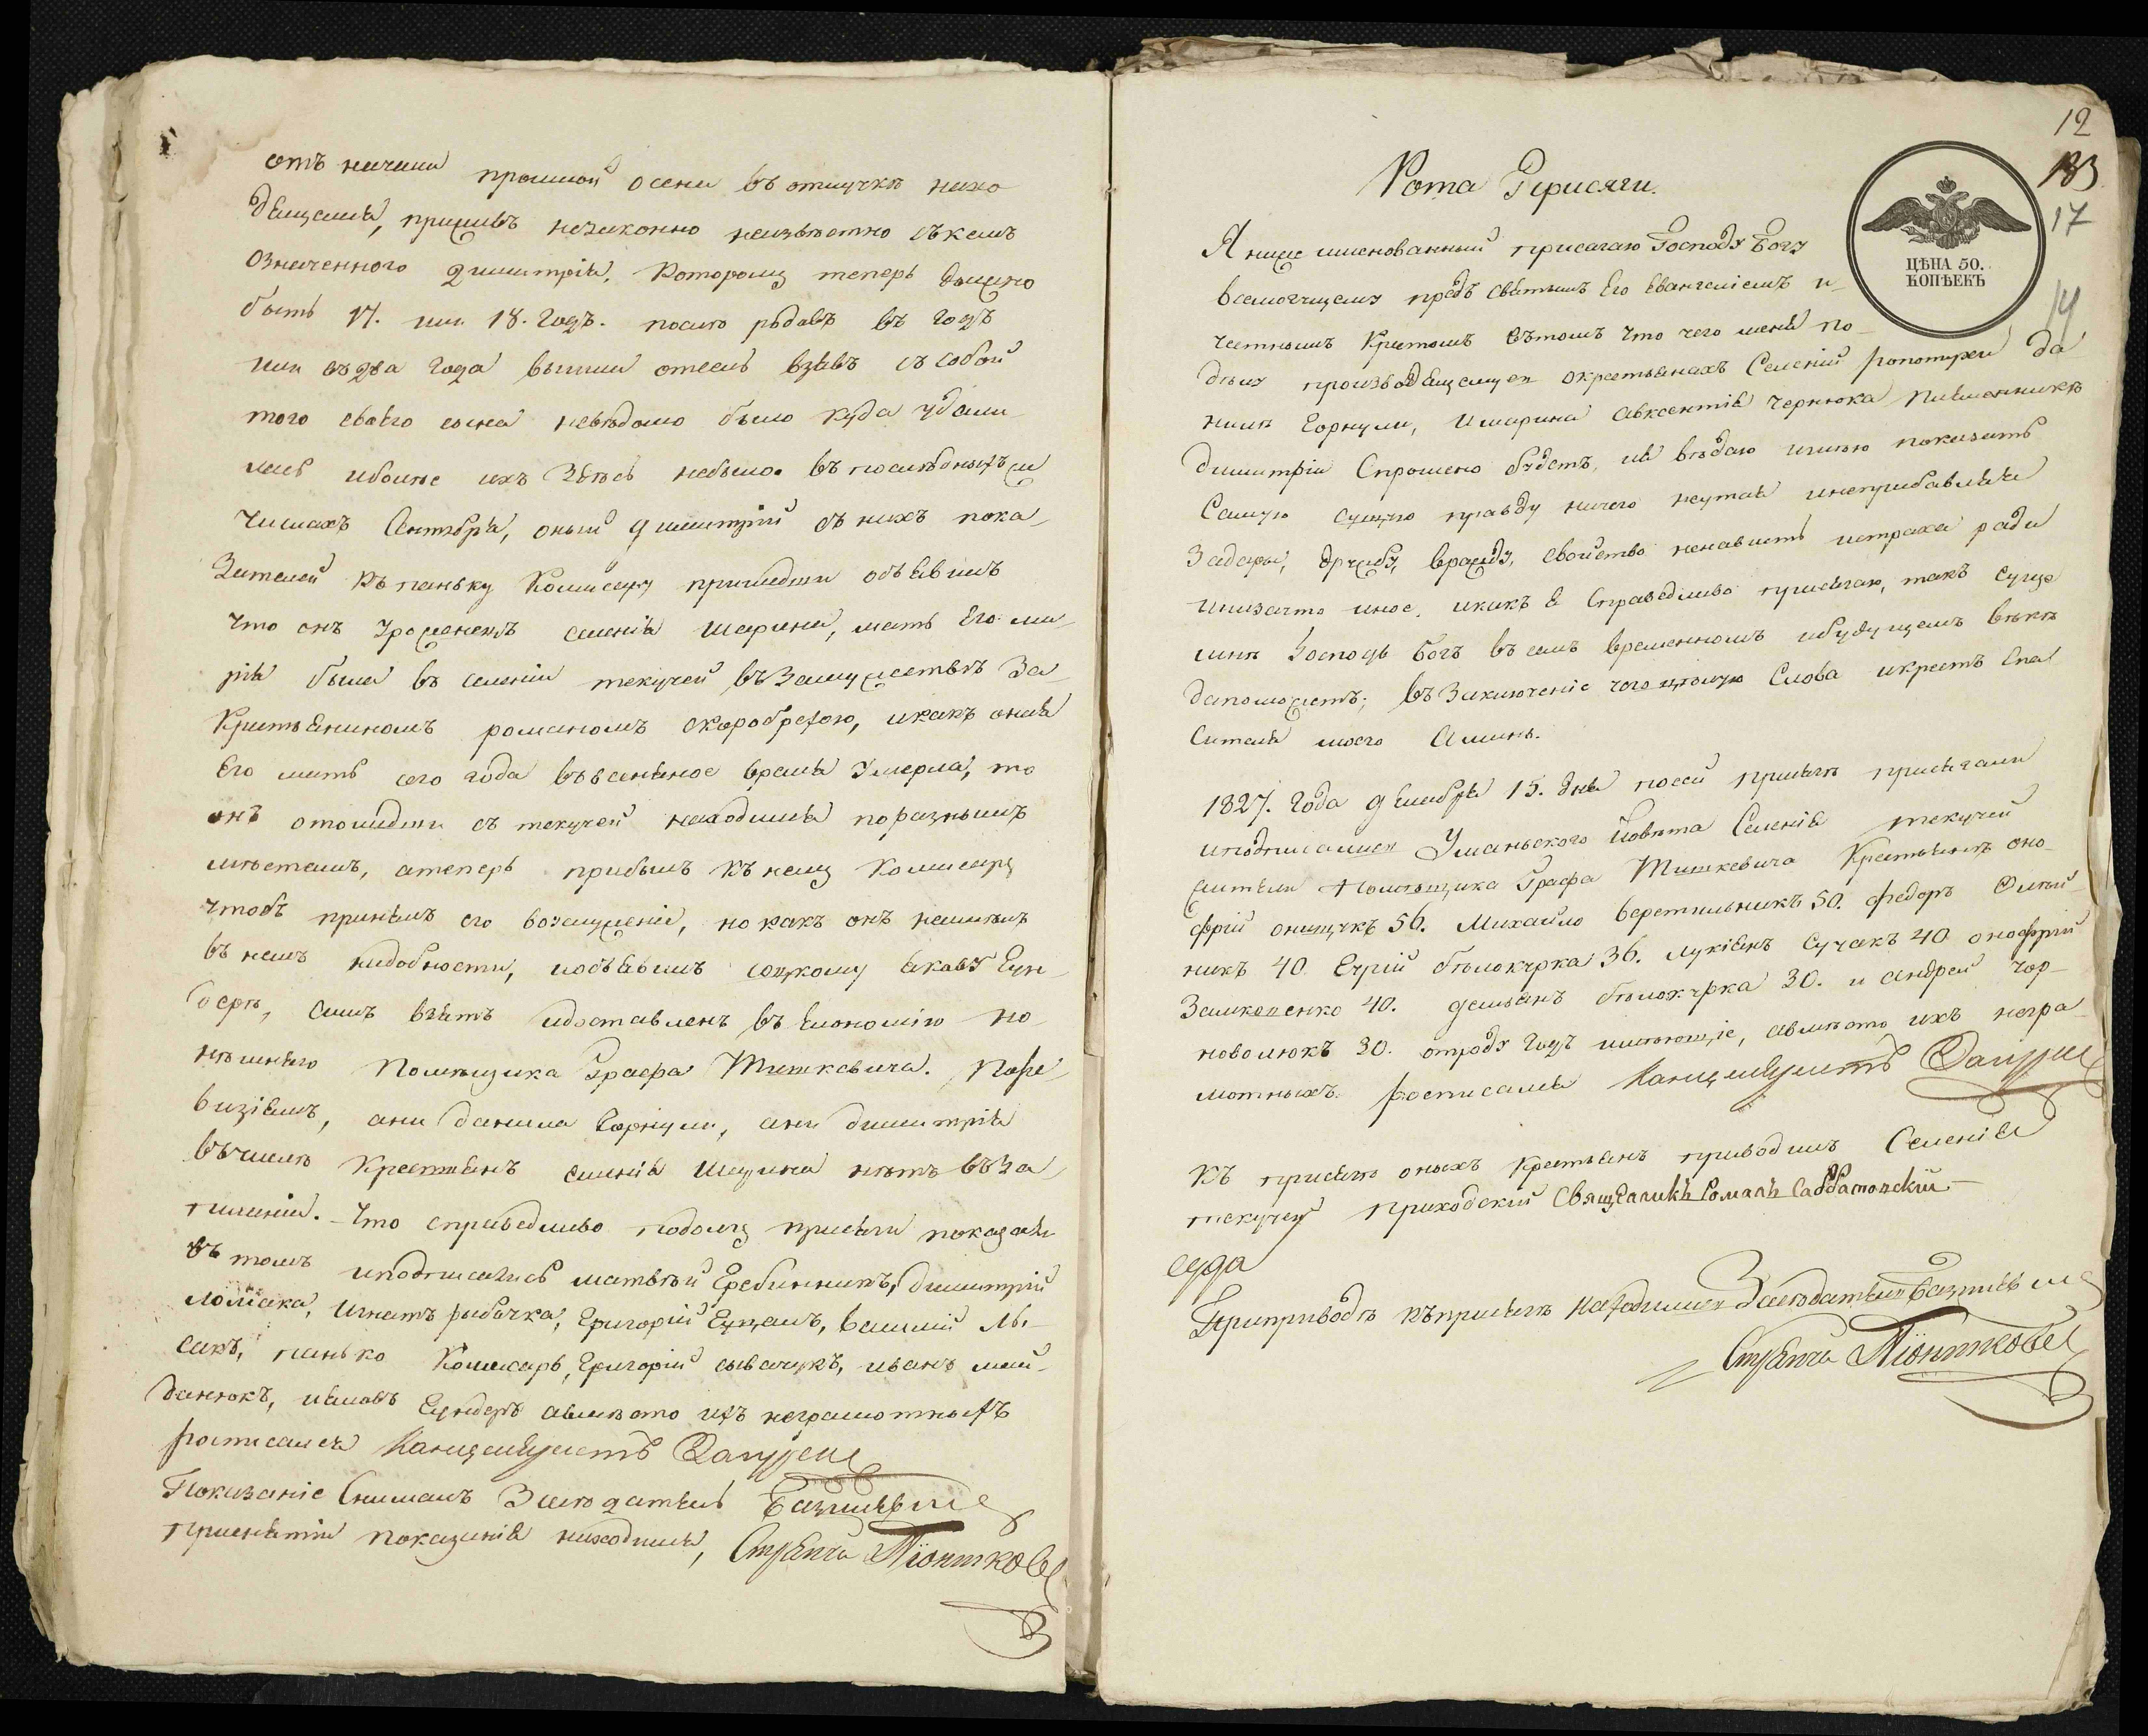 отъ начала прошлой осени въ отлучкѣ нахо
дящаяся, приживъ незаконно неизвѣстно съкемъ
означенного Димитрія, Которому теперь должно
быть 17. или 18. Годъ. после въ годъ
или въ два года вышли отселѣ взявъ съ собой
того своего сына невѣдомо было куда удали
лись иболѣе ихъ Здѣсь небыло. въ послѣднихъ
числахъ Сентября, оный Димитрій съ нихъ пока
зателей къ паньку Комисару пришедши объявилъ
что онъ уроженецъ селенія Шарина, мать Его ма
рія была въ селеніи текучей въ Замужествѣ За
Крестьяниномъ романомъ скоробрехою, икакъ оная
Его мать сего года въвесеннее время Умерла, то
онъ отошедши съ текучей находился поразнымъ
мѣстамъ, атеперь прибылъ къ нему Комисару
чтобъ принялъ его, но какъ онъ неимѣлъ
въ немъ надобности, иобъявилъ соцкому Якову Гун
деру, симъ взятъ идоставленъ въ Економію но
нѣшнего Помѣщика Графа Тишкевича. Поре
визіямъ, ани данила Горкуши, ани димитрія
въчислѣ Крестьянъ селенія Шарина нѣтъ въЗа
писаніи. Что справедливо подолгу присяги показали
въ томъ иподписались матвѣй Гребинникъ, димитрій
ломака, Игнатъ рыбачка, Григорій Гуцалъ, василій Лы
сакъ, панько Комисаръ, Григорій сывачукъ, иванъ май
данюкъ, иЯковъ Гундеръ авмѣсто ихъ неграмотныхъ
росписался Канцеляристъ
Показаніе Снималъ Засѣдатель
Приснятіи показанія находился, Стряпчій Піонтков
12
183
17
14
ЦѢНА 50.
КОПѢЕКЪ
Рота Присяги.
Я ниже именованный присягаю Господу Богу
всемогущему предъ святымъ Его Евангеліемъ и
честнымъ Крестомъ вътомъ что чего меня по
дѣлу производящемуся окрестьянахъ Селеній ропотухи да
нилѣ Горкуши, Шарина авксентія Чернюка племянникѣ
димитріи Спрошено будетъ, что вѣдаю имѣю показать
Самую сущую правду ничего неутая инеприбавляя
Задары, дружбу, вражду, свойство ненависть истраха ради
инизачто иное, икакъ я справедливо присягаю, такъ Суще
мнѣ Господь Богъ въ семъ временномъ ибудущемъ вѣкѣ
даПоможетъ; въЗаключеніе чего цѣлую Слова икрестъ Спа
сителя моего Аминь.
1827. Года декабря 15. дня посей присягѣ присягали
иподписались Уманьского Повѣта Селенія текучей
жители Помѣщика Графа Тишкевича Крестьянѣ оно
фрій онищукъ 56. Михайло веретильникъ 50. федоръ Олѣй
никъ 40. Юрій бѣлокурка 36. лукіянъ Сучакъ 40 онофрій
Замкопенко 40. демьянъ бѣлокурка 30. и андрей чор
новолюкъ 30. отроду годъ имѣющіе, авмѣсто ихъ негра
мотныхъ росписался Канцеляристъ
Къ присягѣ оныхъ крестьянъ приводилъ Селенія
текучей Приходскій Священикъ Романъ Саббатовскій
Приприводѣ къприсягѣ находился Засѣдатель
Стряпчій Піонтков